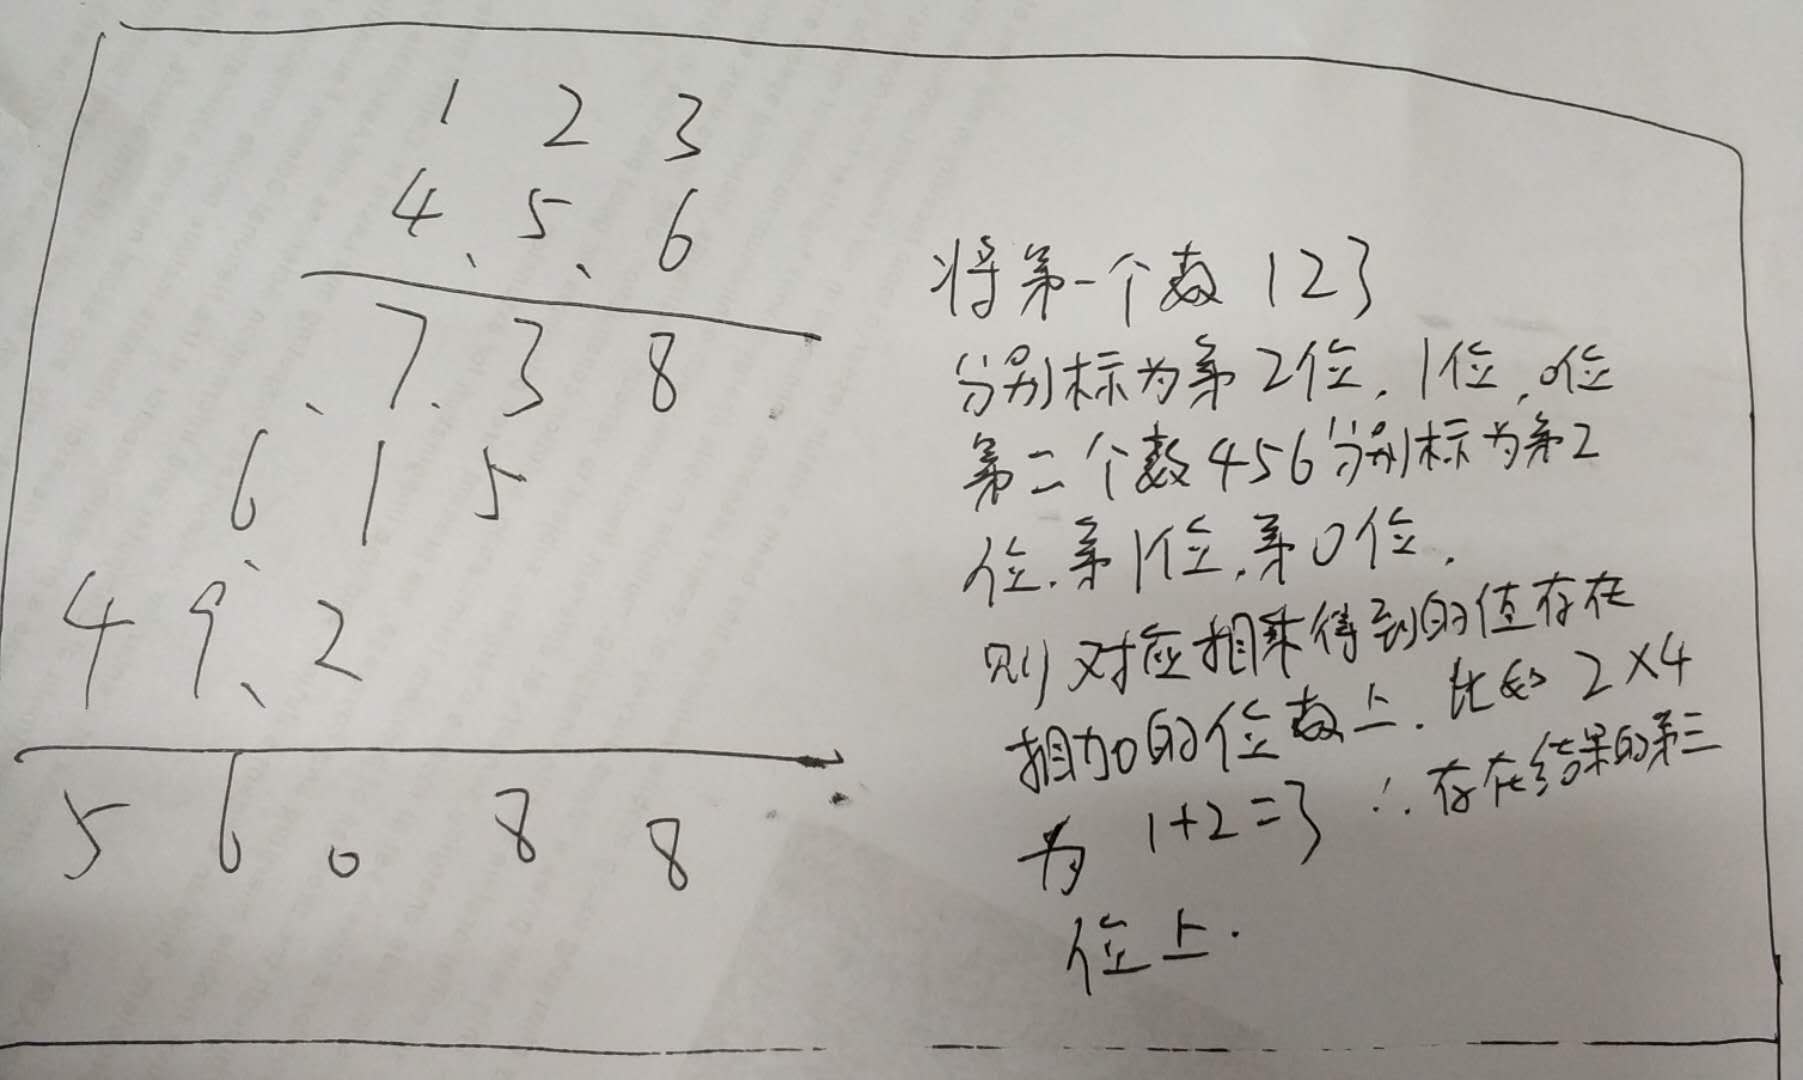 1 2 3
4 5 6
7 3 8
6 1 5
4 9 2
5 6 0 8 8
将第一个数 123
分别标为第2位，1位，0位
第二个数456分别标为第2
位，第1位，第0位，
则对应相乘得到的值存在
相加的位数上．比如 2×4
为 1+2=3 ∴存在结果的第三
位上．